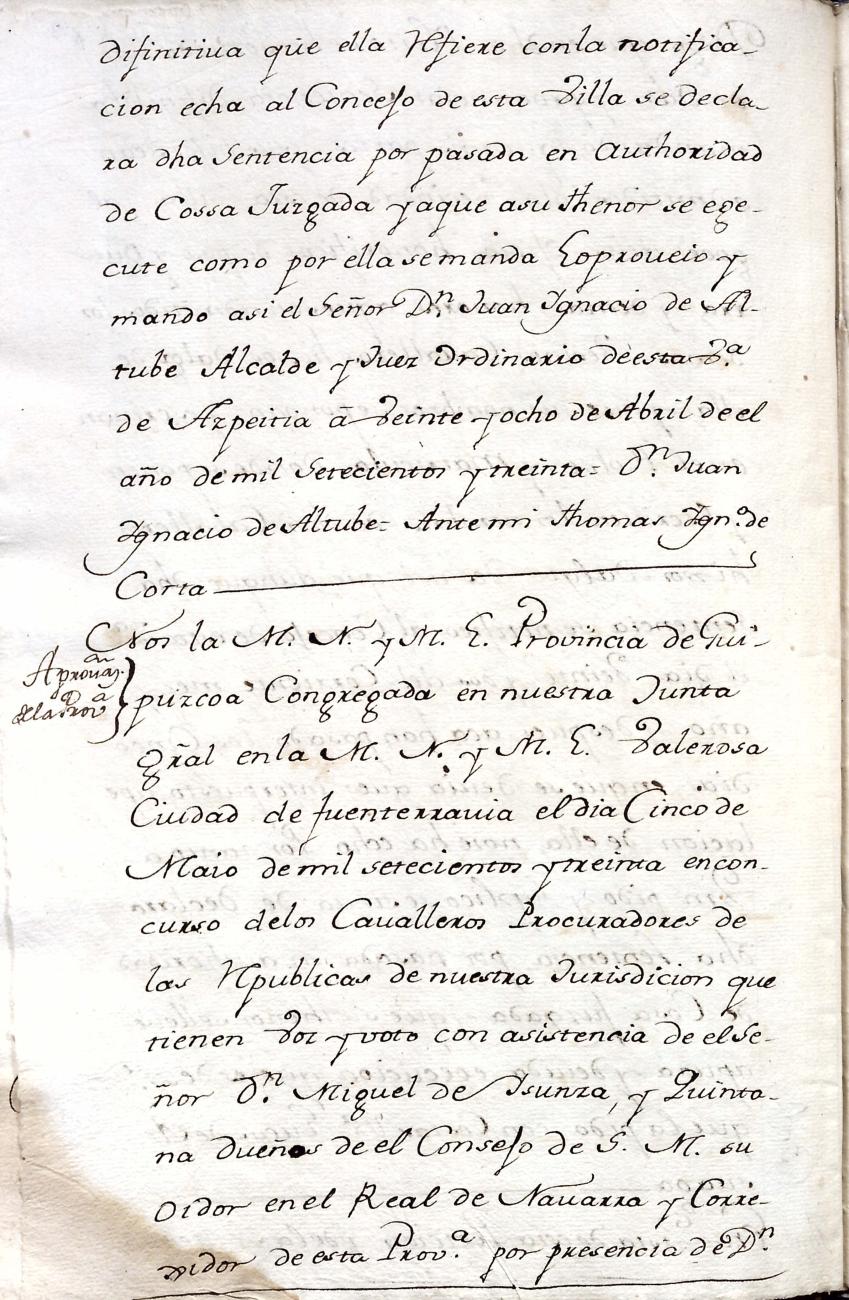 difinitiua que ella Rfiere conla notifica-
cion echa al Concejo de esta Villa se decla-
ra dha Sentencia por pasada en Authoridad
de Cossa Juzgada y aque asu thenor se ege-
cute como por ella se manda Loproueio y
mando asi el Señor Dn. Juan Ignacio de Al-
tube Alcalde y Juez Ordinario de esta Va.
de Azpeitia â Veinte y ocho de Abril de el
año de mil Setecientos y treinta= Dn. Juan
Ignacio de Altube= Ante mi Thomas Igno. de
Corta
Nos la M. N. y M. L. Provincia de Gui-
Aprouaon.
dela Prova
puzcoa Congregada en nuestra Junta
grãl en la M. N. y M. L. Valerosa
Ciudad de fuenterrauia el dia Cinco de
Maio de mil setecientos y treinta en con-
curso delos Caualleros Procuradores de
las Rpublicas de nuestra Jurisdicion que
tienen Voz y voto con asistencia de el Se-
ñor Dn. Miguel de Isunza, y Quinta-
na dueñas de el Consejo de S. M. su
Oidor en el Real de Nauarra y Corre-
vidor de esta Prova. por presencia de Dn.